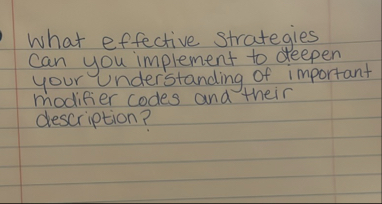 What effective strategies
Can you implement to deepen
your understanding of important
modifier codes and their
description?